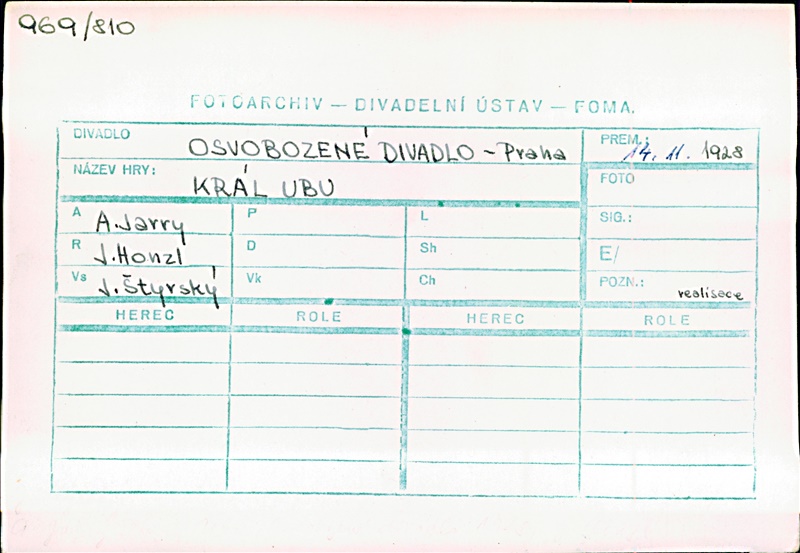 969/810
FOTOARCHIV — DIVADELNÍ ÚSTAV — FOMA.
DIVADLO OSVOBOZENÉ DIVADLO - Praha PREM.: 14. 11. 1928
NÁZEV HRY: KRÁL UBU FOTO
A A. Jarry P L SIG.:
R J. Honzl D Sh E/
Vs J. Štyrský Vk Ch POZN.: realisace
HEREC ROLE HEREC ROLE